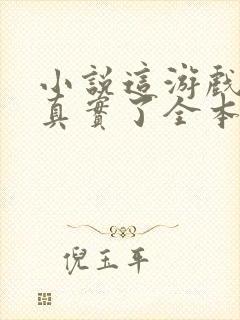 小說這游戲
真實了全本
倪玉平